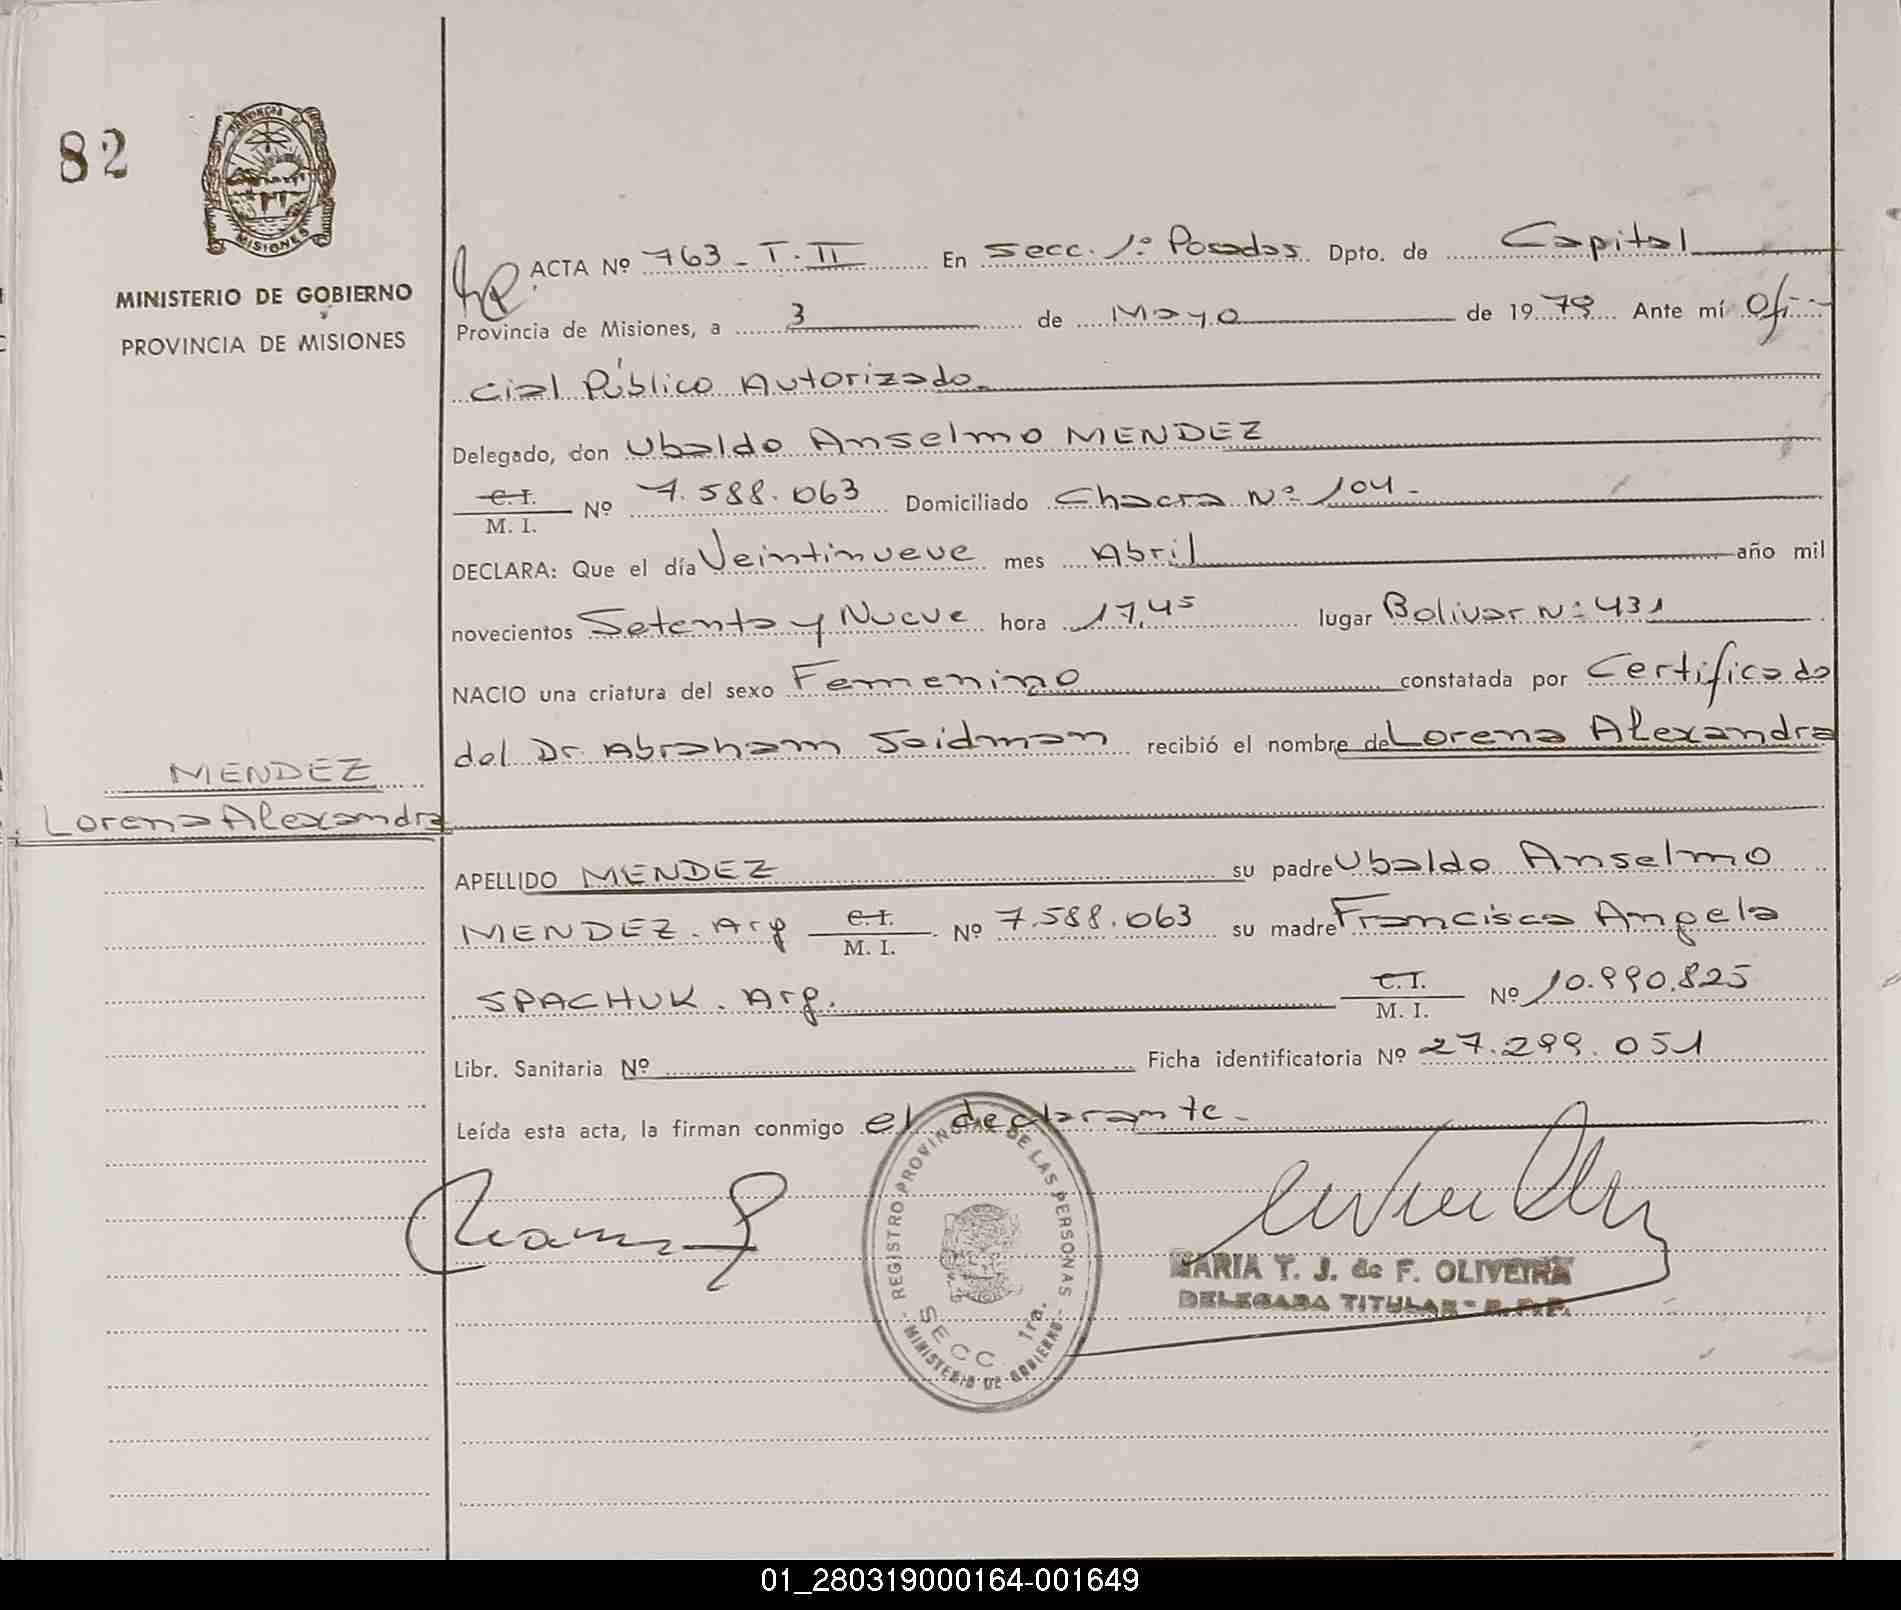 82
PROVINCIA DE
MISIONES
MINISTERIO DE GOBIERNO
PROVINCIA DE MISIONES
MENDEZ
Lorena Alexandra
ACTA Nº 763 - T. II En Secc. 1º Posadas Dpto. de Capital
Provincia de Misiones, a 3 de Mayo de 1979 Ante mí Ofi-
cial Público Autorizado.
Delegado, don Ubaldo Anselmo MENDEZ
C.I.
M. I. Nº 7.588.063 Domiciliado Chacra Nº 104 -
DECLARA: Que el día Veintinueve mes Abril año mil
novecientos Setenta y Nueve hora 17,45 lugar Bolivar Nº 431
NACIO una criatura del sexo Femenino constatada por Certificado
del Dr. Abraham Seidman recibió el nombre de Lorena Alexandra
APELLIDO MENDEZ su padre Ubaldo Anselmo
MENDEZ. Arg C.I. M. I. Nº 7.588.063 su madre Francisca Angela
SPACHUK. Arg. C.I. M. I. Nº 10.990.825
Libr. Sanitaria Nº Ficha identificatoria Nº 27.299.051
Leída esta acta, la firman conmigo el declarante -
REGISTRO PROVINCIAL DE LAS PERSONAS
SECC. 1ra.
MINISTERIO DE GOBIERNO
MARIA T. J. de F. OLIVEIRA
DELEGADA TITULAR - R. P. P.
01_280319000164-001649